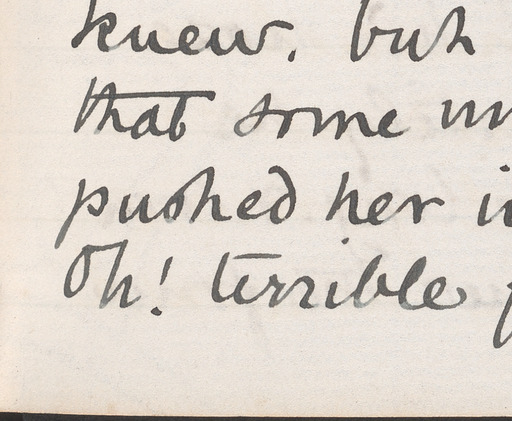 knew, but
that some
pushed her
Oh! terrible